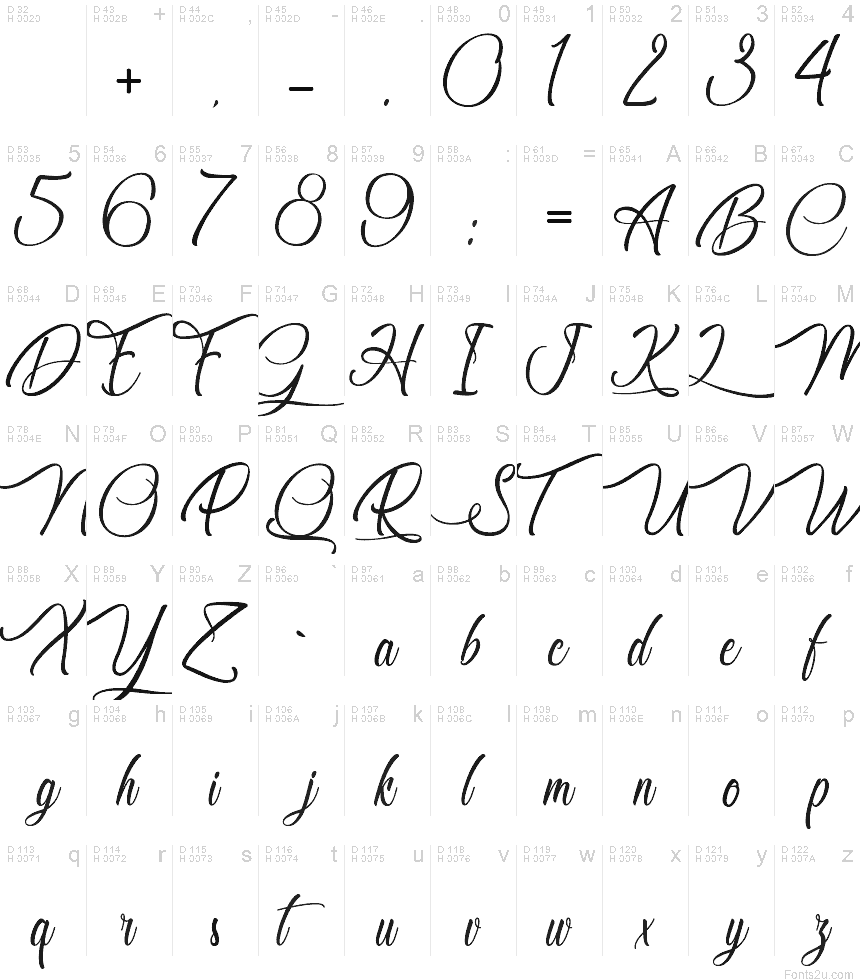 D 32 H 0020 D 43 H 002B + D 44 H 002C , D 45 H 002D - D 46 H 002E . D 48 H 0030 0 D 49 H 0031 1 D 50 H 0032 2 D 51 H 0033 3 D 52 H 0034 4
+ , - . 0 1 2 3 4
D 53 H 0035 5 D 54 H 0036 6 D 55 H 0037 7 D 56 H 0038 8 D 57 H 0039 9 D 58 H 003A : D 61 H 003D = D 65 H 0041 A D 66 H 0042 B D 67 H 0043 C
5 6 7 8 9 : = A B C
D 68 H 0044 D D 69 H 0045 E D 70 H 0046 F D 71 H 0047 G D 72 H 0048 H D 73 H 0049 I D 74 H 004A J D 75 H 004B K D 76 H 004C L D 77 H 004D M
D E F G H I J K L M
D 78 H 004E N D 79 H 004F O D 80 H 0050 P D 81 H 0051 Q D 82 H 0052 R D 83 H 0053 S D 84 H 0054 T D 85 H 0055 U D 86 H 0056 V D 87 H 0057 W
N O P Q R S T U V W
D 88 H 0058 X D 89 H 0059 Y D 90 H 005A Z D 96 H 0060 ` D 97 H 0061 a D 98 H 0062 b D 99 H 0063 c D 100 H 0064 d D 101 H 0065 e D 102 H 0066 f
X Y Z ` a b c d e f
D 103 H 0067 g D 104 H 0068 h D 105 H 0069 i D 106 H 006A j D 107 H 006B k D 108 H 006C l D 109 H 006D m D 110 H 006E n D 111 H 006F o D 112 H 0070 p
g h i j k l m n o p
D 113 H 0071 q D 114 H 0072 r D 115 H 0073 s D 116 H 0074 t D 117 H 0075 u D 118 H 0076 v D 119 H 0077 w D 120 H 0078 x D 121 H 0079 y D 122 H 007A z
q r s t u v w x y z
Fonts2u.com